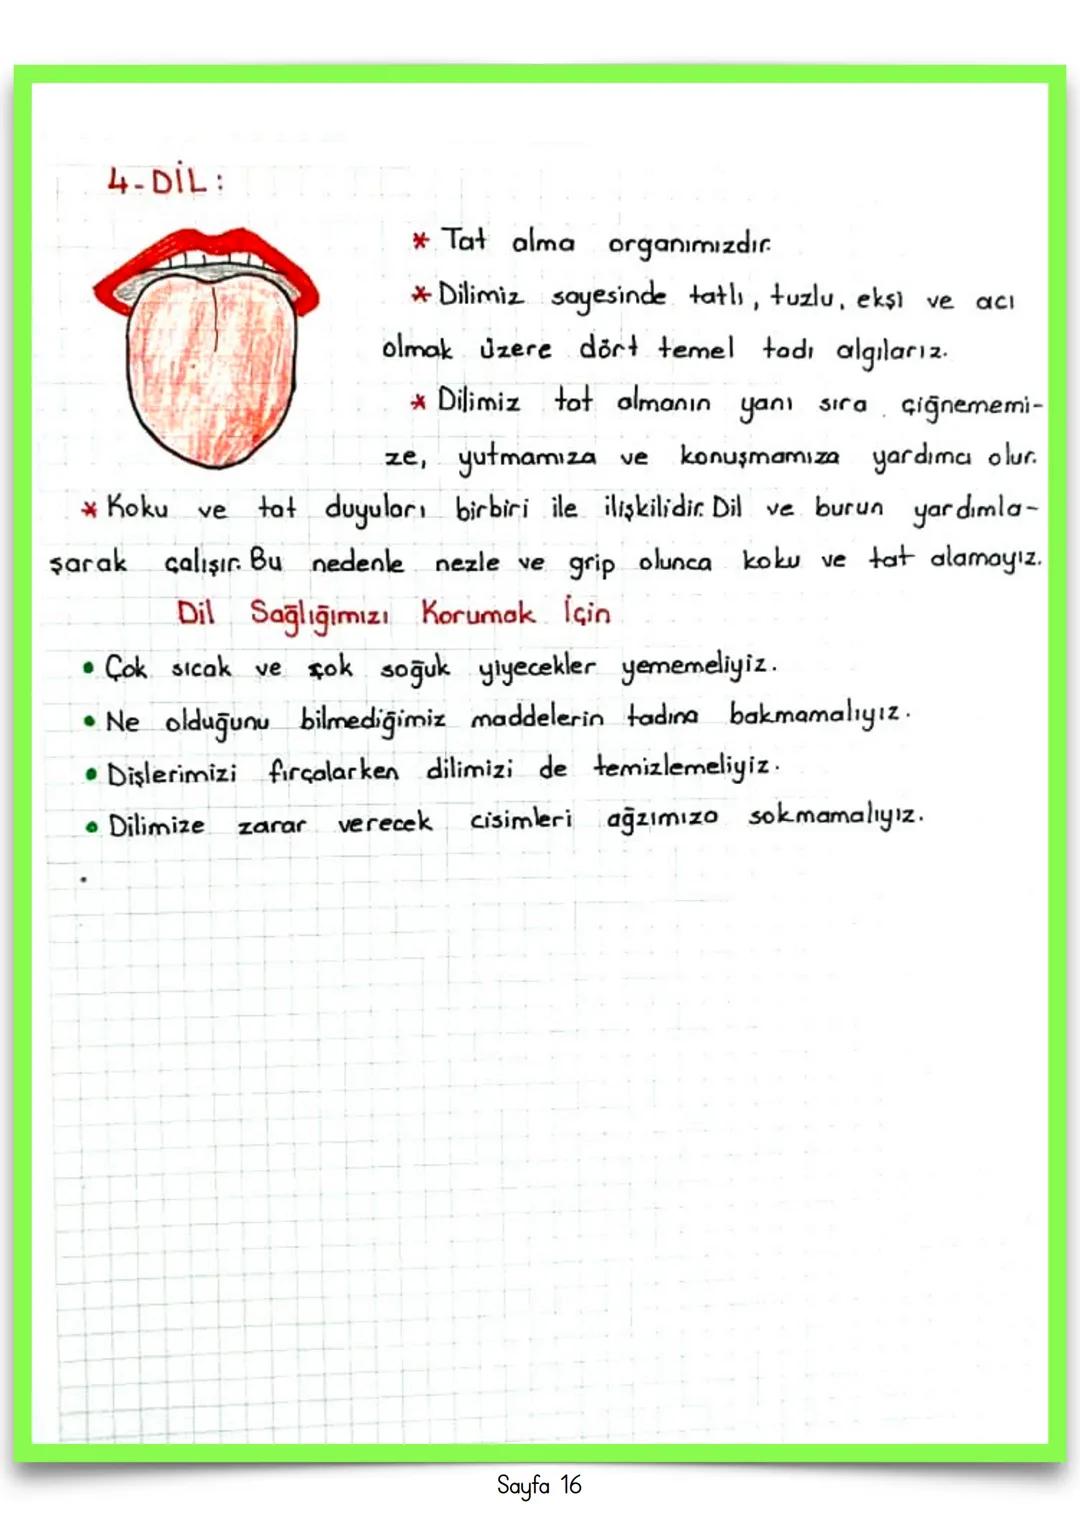 4-DİL:
* Tat alma organımızdır.
* Dilimiz sayesinde tatlı, tuzlu, ekşi ve acı
olmak üzere dört temel tadı algılarız.
* Dilimiz tat almanın yanı sıra çiğnememi-
ze, yutmamıza ve konuşmamıza yardımcı olur.
* Koku ve tat duyuları birbiri ile ilişkilidir. Dil ve burun yardımla-
şarak çalışır. Bu nedenle nezle ve grip olunca koku ve tat alamayız.
Dil Sağlığımızı Korumak İçin
• Çok sıcak ve çok soğuk yiyecekler yememeliyiz.
• Ne olduğunu bilmediğimiz maddelerin tadına bakmamalıyız.
• Dişlerimizi fırçalarken dilimizi de temizlemeliyiz.
• Dilimize zarar verecek cisimleri ağzımıza sokmamalıyız.
Sayfa 16